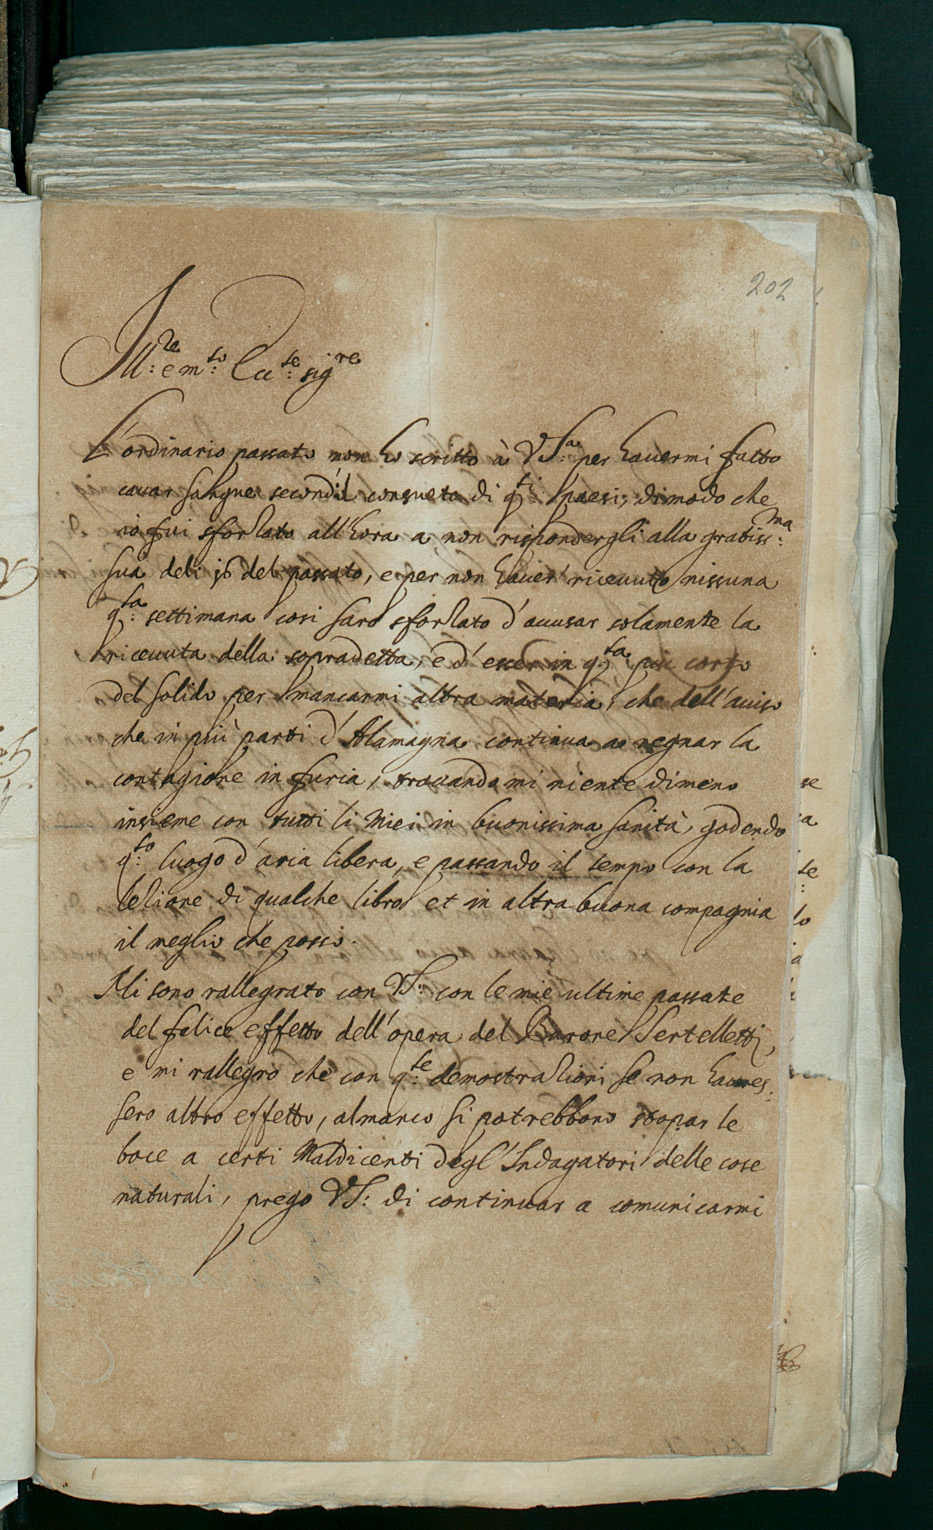 202
Ill:re e m:to Ecc:te sig:re
L'ordinario passato non ho scritto à VS:a per havermi fatto
cavar sangue second'il consueto di q:ti paesi, dimodo che
io fui sforzato all'hora a non rispondergli alla gratiss:ma
sua deli 16 del passato, e per non haver ricevuto nissuna
q:sta settimana cosi sarò sforzato d'accusar solamente la
ricevuta della sopradetta, e d'esser in q:sta più corto
del solido per mancarmi altra materia, che dell'aviso
che in più parti d'Alamagna continua a regnar la
contagione in furia, trovandomi niente dimeno
insieme con tutti li Miei in buonissima sanità, godendo
q:to luogo d'aria libera, e passando il tempo con la
lezione di qualche libro et in altra buona compagnia
il meglio che posso.
Mi sono rallegrato con VS: con le mie ultime passate
del felice effetto dell'opera del Barone Sertelletti,
e mi rallegro che con q:te demostrazioni se non haves:
sero altro effetto, almanco si potrebbono stopar le
boce a certi Maldicenti degl'Indagatori delle cose
naturali, prego VS: di continuar a comunicarmi